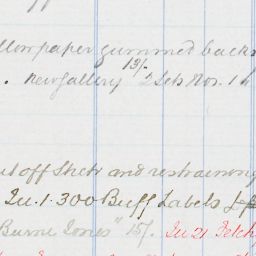 paper gummed backs
13/-
New Gallery 2 Sets Nos. 1
off Sketr and restraining
Qu. 1. 300 Buff Labels
Burne Jones" 15/. Qu 21 Fetch